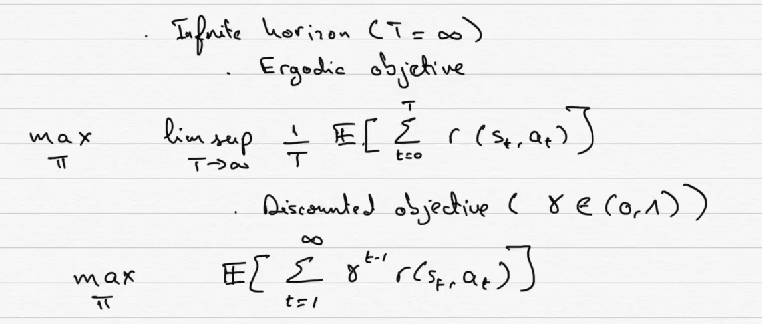 . Infinite horizon (T = ∞)
. Ergodic objctive
max_π lim sup_{T→∞} 1/T 𝔼[ ∑_{t=0}^{T} r(s_t, a_t) ]
. Discounted objective ( γ ∈ (0,1))
max_π 𝔼[ ∑_{t=1}^{∞} γ^{t-1} r(s_t, a_t) ]